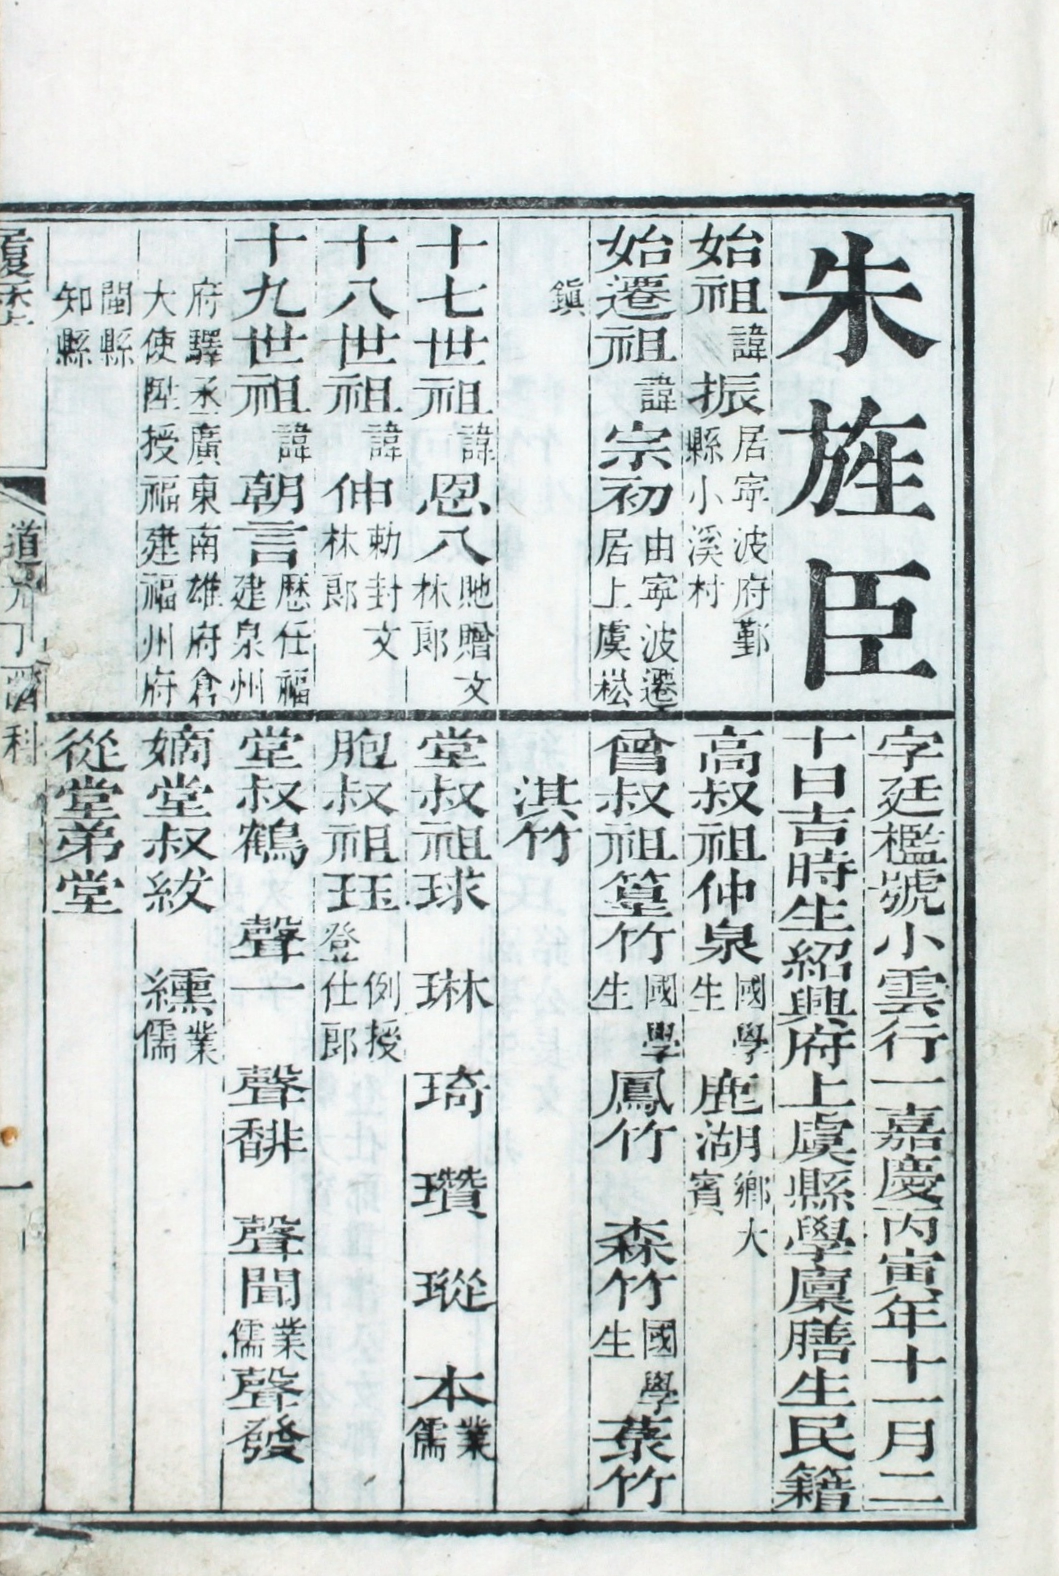 朱旌臣
始祖諱振居寧波府鄞縣小溪村
始遷祖諱宗初由寧波遷居上虞崧
鎮
十七世祖諱恩八貤贈文林郎
十八世祖諱伸勅封文林郎
十九世祖諱朝言歷任福建泉州
府驛丞廣東南雄府倉大使陞授福建福州府
閩縣知縣
字廷檻號小雲行一嘉慶丙寅年十一月二
十日吉時生紹興府上虞縣學廩膳生民籍
高叔祖仲泉國學生 鹿湖鄉大賓
曾叔祖篁竹國學生 鳳竹 森竹國學生 蓁竹
淇竹
堂叔祖球 琳 琦 瓚 瑽 本業儒
胞叔祖珏例授登仕郎
堂叔鶴 聲一 聲馡 聲聞業儒 聲發
嫡堂叔紱 纁業儒
從堂弟堂
道光丁酉科
一